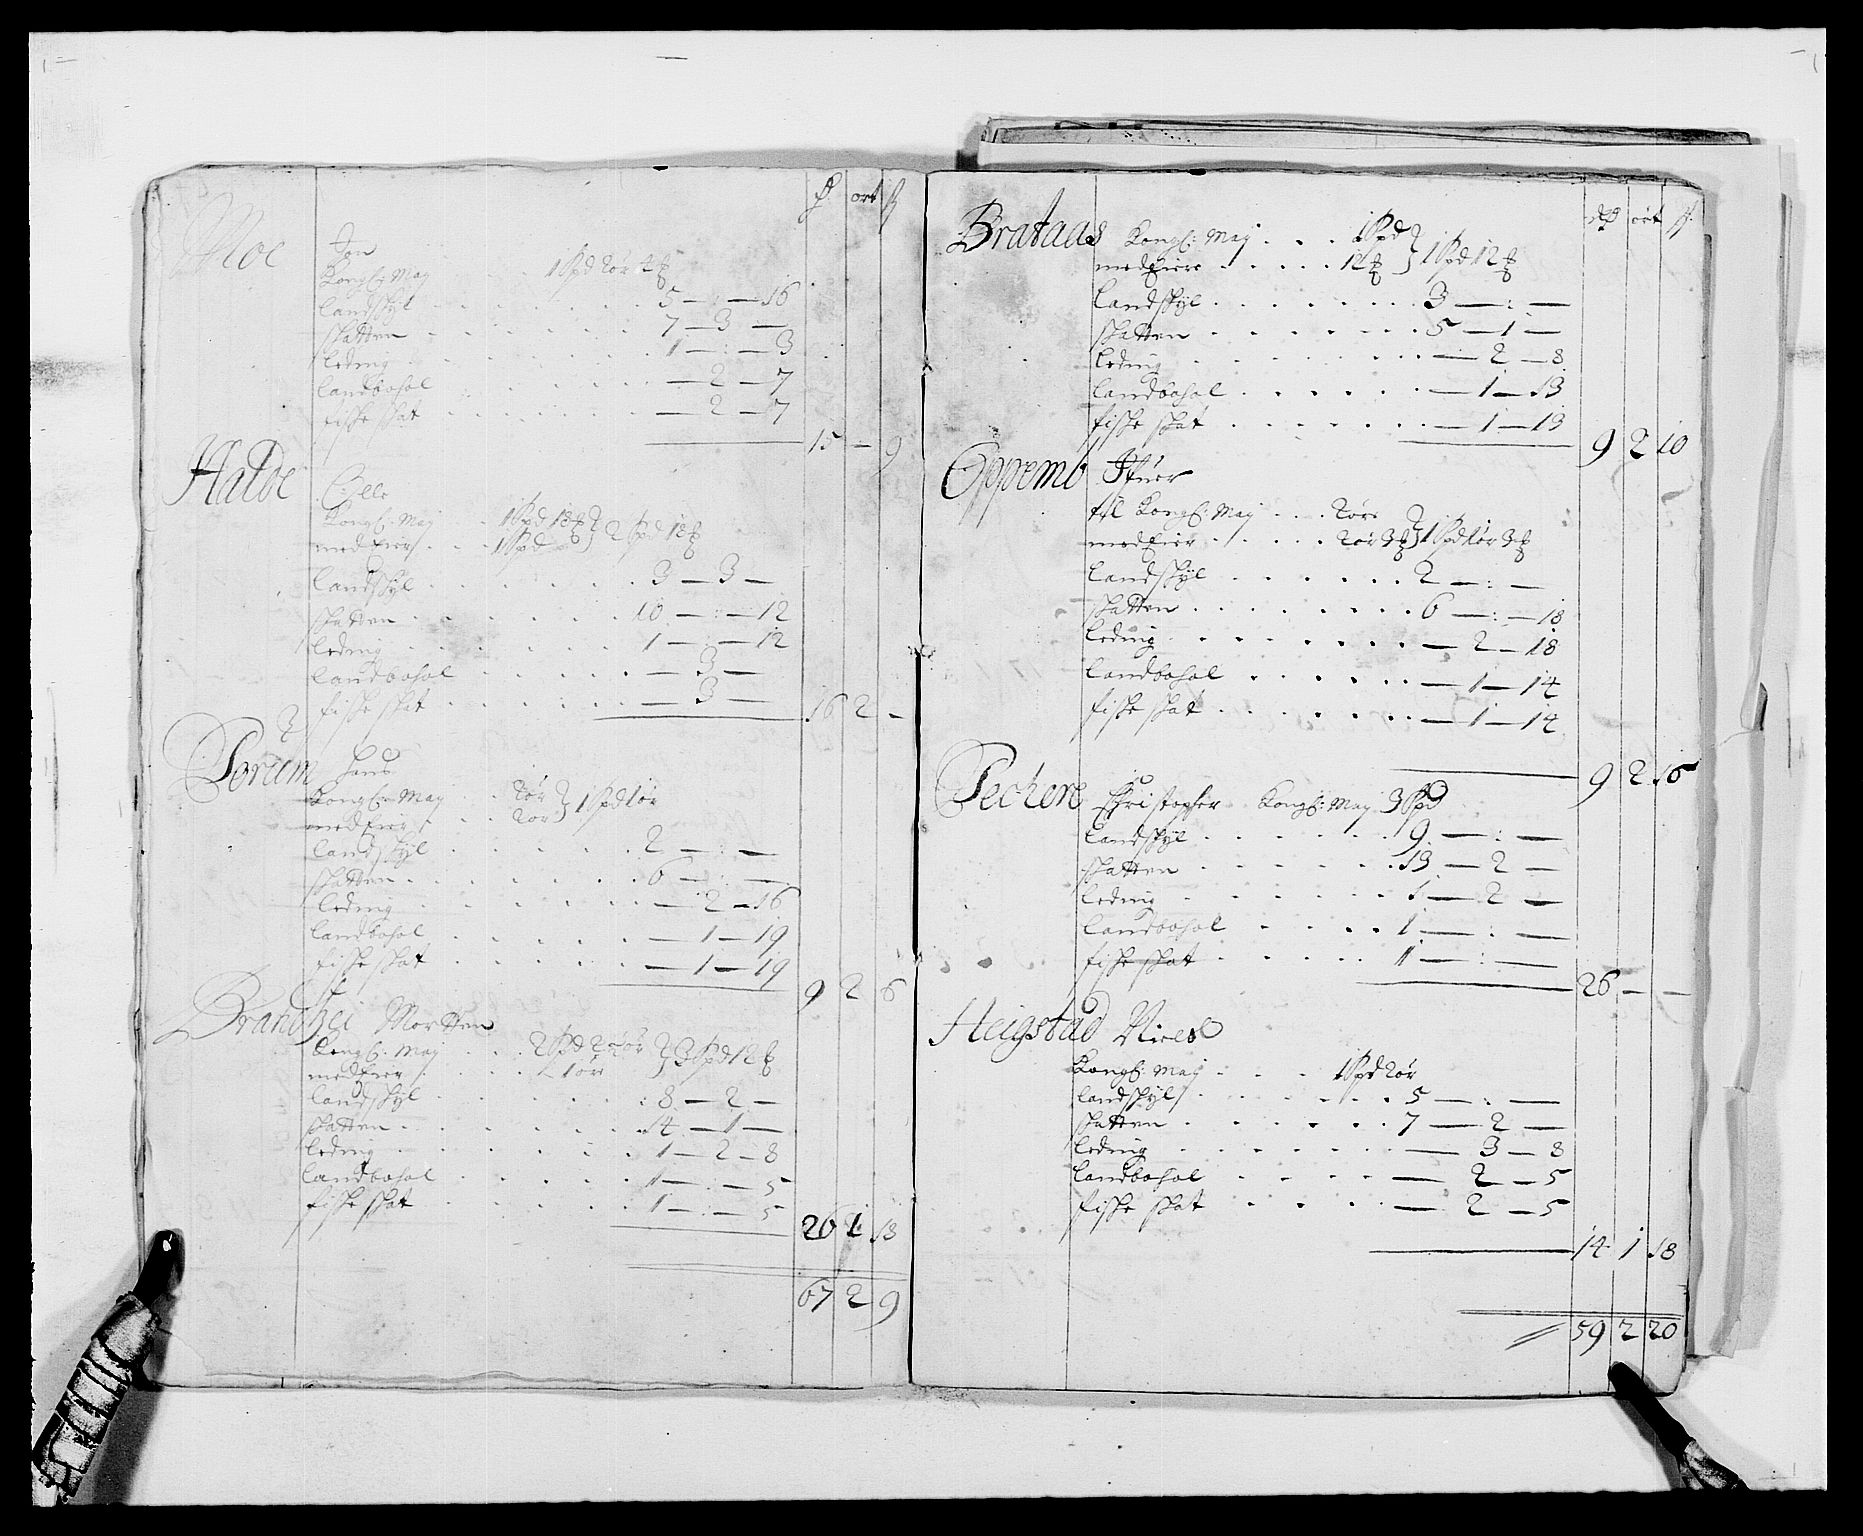 ort ß
Moe Jon
Kongl: May 1 Spd 2ør 4
landskÿl 5 — : — 16
skatten 7 — 3 —
leding 1 — : — 3
landbohol — 2 — 7
fiske skat — 2 — 7
15 — 9
Halde Elle
Kongl: May 1 Spd 18
med Eier 1 Spd 2 Spd 18
landskÿl 3 — 3 —
skatten 10 — : — 12
leding 1 — : — 12
landbohol — 3 —
fiske skat — 3 —
16 2 —
Torum hans
Kongl: May 2ør
med Eier 2ør 1 Spd 1ør
landskÿl 2 — : —
skatten 6 — : —
leding — 2 — 16
landbohol — 1 — 19
fiske skat — 1 — 19
9 2 6
Brandzei Mortten
Kongl: May 2 Spd 2ør
med Eier 1ør 3 Spd 12
landskÿl 8 — 2 —
skatten 14 — 1 —
leding 1 — 2 — 8
landbohol 1 — : — 5
fiske skat 1 — : — 5
26 1 18
67 2 9
ort ß
Brataas Kongl: May 1 Spd
med Eiere 12 1 Spd 12
landskÿl 3 — : —
skatten 5 — 1 —
leding — 2 — 8
landbohol — 1 — 13
fiske skat — 1 — 13
9 2 10
Oppemo Ifuer
til Kongl: May 2ør
med Eier 2ør 3 1 Spd 1ør 3
landskÿl 2 — : —
skatten 6 — : — 18
leding — 2 — 18
landbohol — 1 — 14
fiske skat — 1 — 14
9 2 16
Techere Christopher Kongl: May 3 Spd
landskÿl 9 — : —
skatten 13 — 2 —
leding 1 — 2 —
landbohol 1 — : —
fiske skat 1 — : —
26 — —
Heigstad Niels
Kongl: May 1 Spd 2ør
landskÿl 5 — : —
skatten 7 — 2 —
leding — 3 — 8
landbohol — 2 — 5
fiske skat — 2 — 5
14 1 18
59 2 20